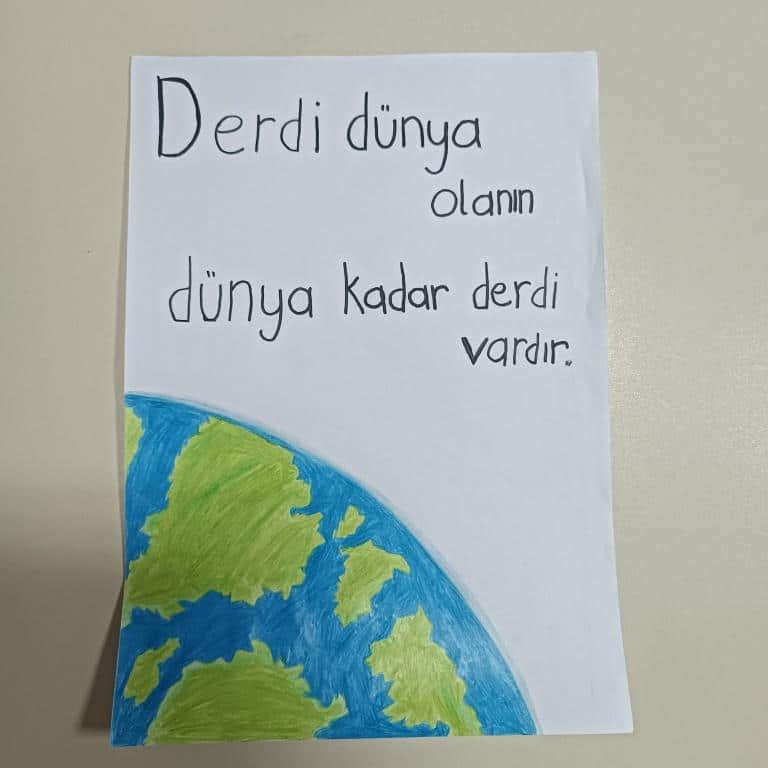 Derdi dünya
olanın
dünya kadar derdi
vardır.